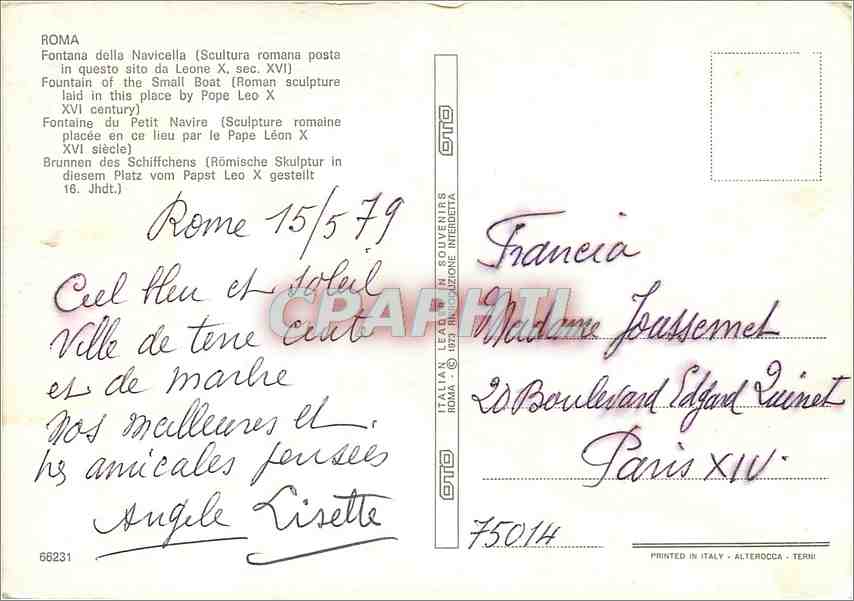 ROMA
Fontana della Navicella (Scultura romana posta
in questo sito da Leone X, sec. XVI)
Fountain of the Small Boat (Roman sculpture
laid in this place by Pope Leo X
XVI century)
Fontaine du Petit Navire (Sculpture romaine
placée en ce lieu par le Pape Léon X
XVI siècle)
Brunnen des Schiffchens (Römische Skulptur in
diesem Platz vom Papst Leo X gestellt
16. Jhdt.)
Rome 15/5 79
Ciel bleu et soleil
Ville de terre cuite
et de marbre
Nos meilleures et
très amicales pensées
Angele Lisette
66231
OTO
ITALIAN LEADER IN SOUVENIRS
ROMA - © 1973 RIPRODUZIONE INTERDETTA
OTO
CPAPHIL
Francia
Madame Joussemet
20 Boulevard Edgard Quinet
Paris XIV.
75014
PRINTED IN ITALY - ALTEROCCA - TERNI